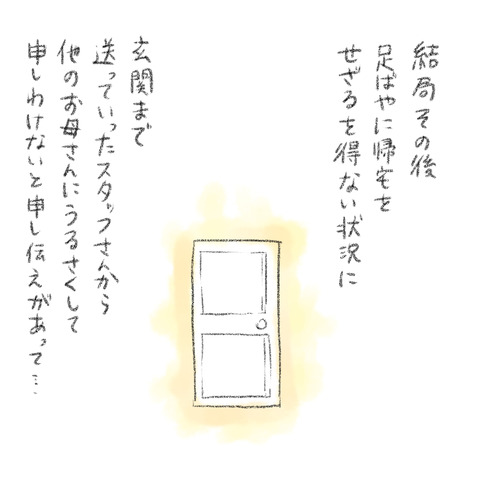 結局その後
足ばやに帰宅を
せざるを得ない状況に
玄関まで
送っていったスタッフさんから
他のお母さんにうるさくして
申しわけないと申し伝えがあって…